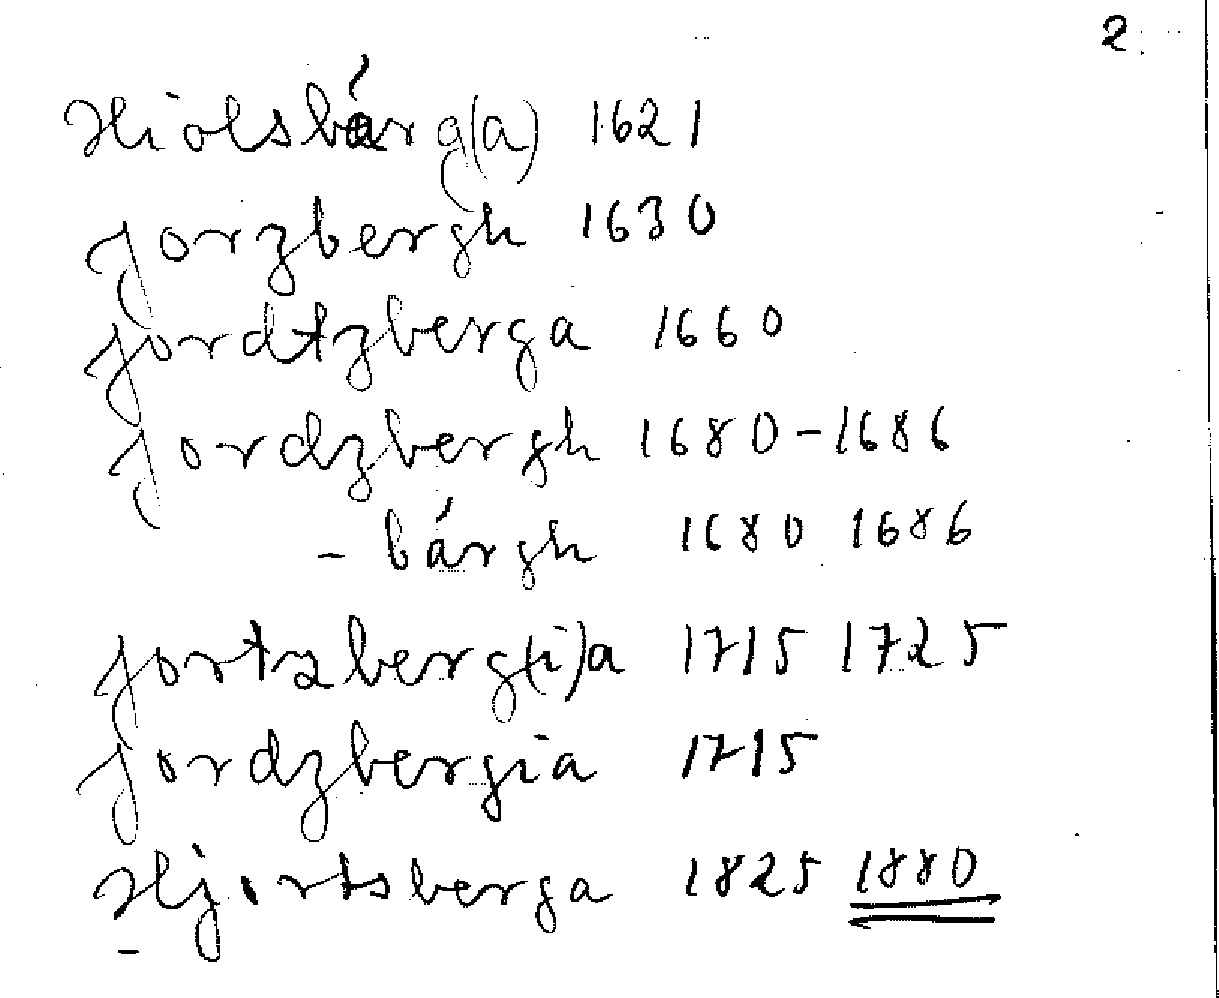 2.
Hiolsbárg(a) 1621
Jorzbergh 1630
Jordtzberga 1660
Jordzbergh 1680-1686
- bárgh 1680 1686
Jortzberg(i)a 1715 1725
Jordzbergia 1715
Hjortsberga 1825 1880